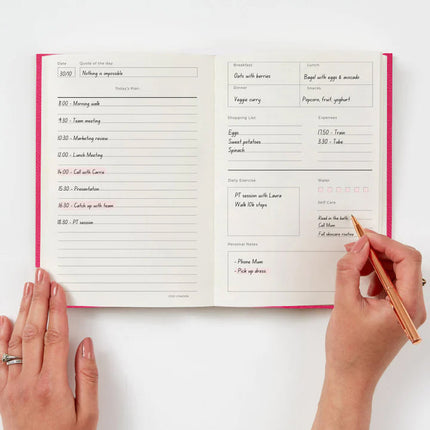 Date
Quote of the day
30/10
Nothing is impossible
Today's Plan
8:00 - Morning walk
9:30 - Team meeting
10:30 - Marketing review
12:00 - Lunch Meeting
14:00 - Call with Carrie
15:30 - Presentation
16:30 - Catch up with team
18:30 - PT session
Breakfast
Lunch
Oats with berries
Bagel with eggs & avocado
Dinner
Snacks
Veggie curry
Popcorn, fruit, yoghurt
Shopping List
Expenses
Eggs
Sweet potatoes
Spinach
17.50 - Train
3.30 - Tube
Daily Exercise
Water
PT session with Laura
Walk 10k steps
Self Care
Read in the bath
Call Mum
Full skincare routine
Personal Notes
- Phone Mum
- Pick up dress